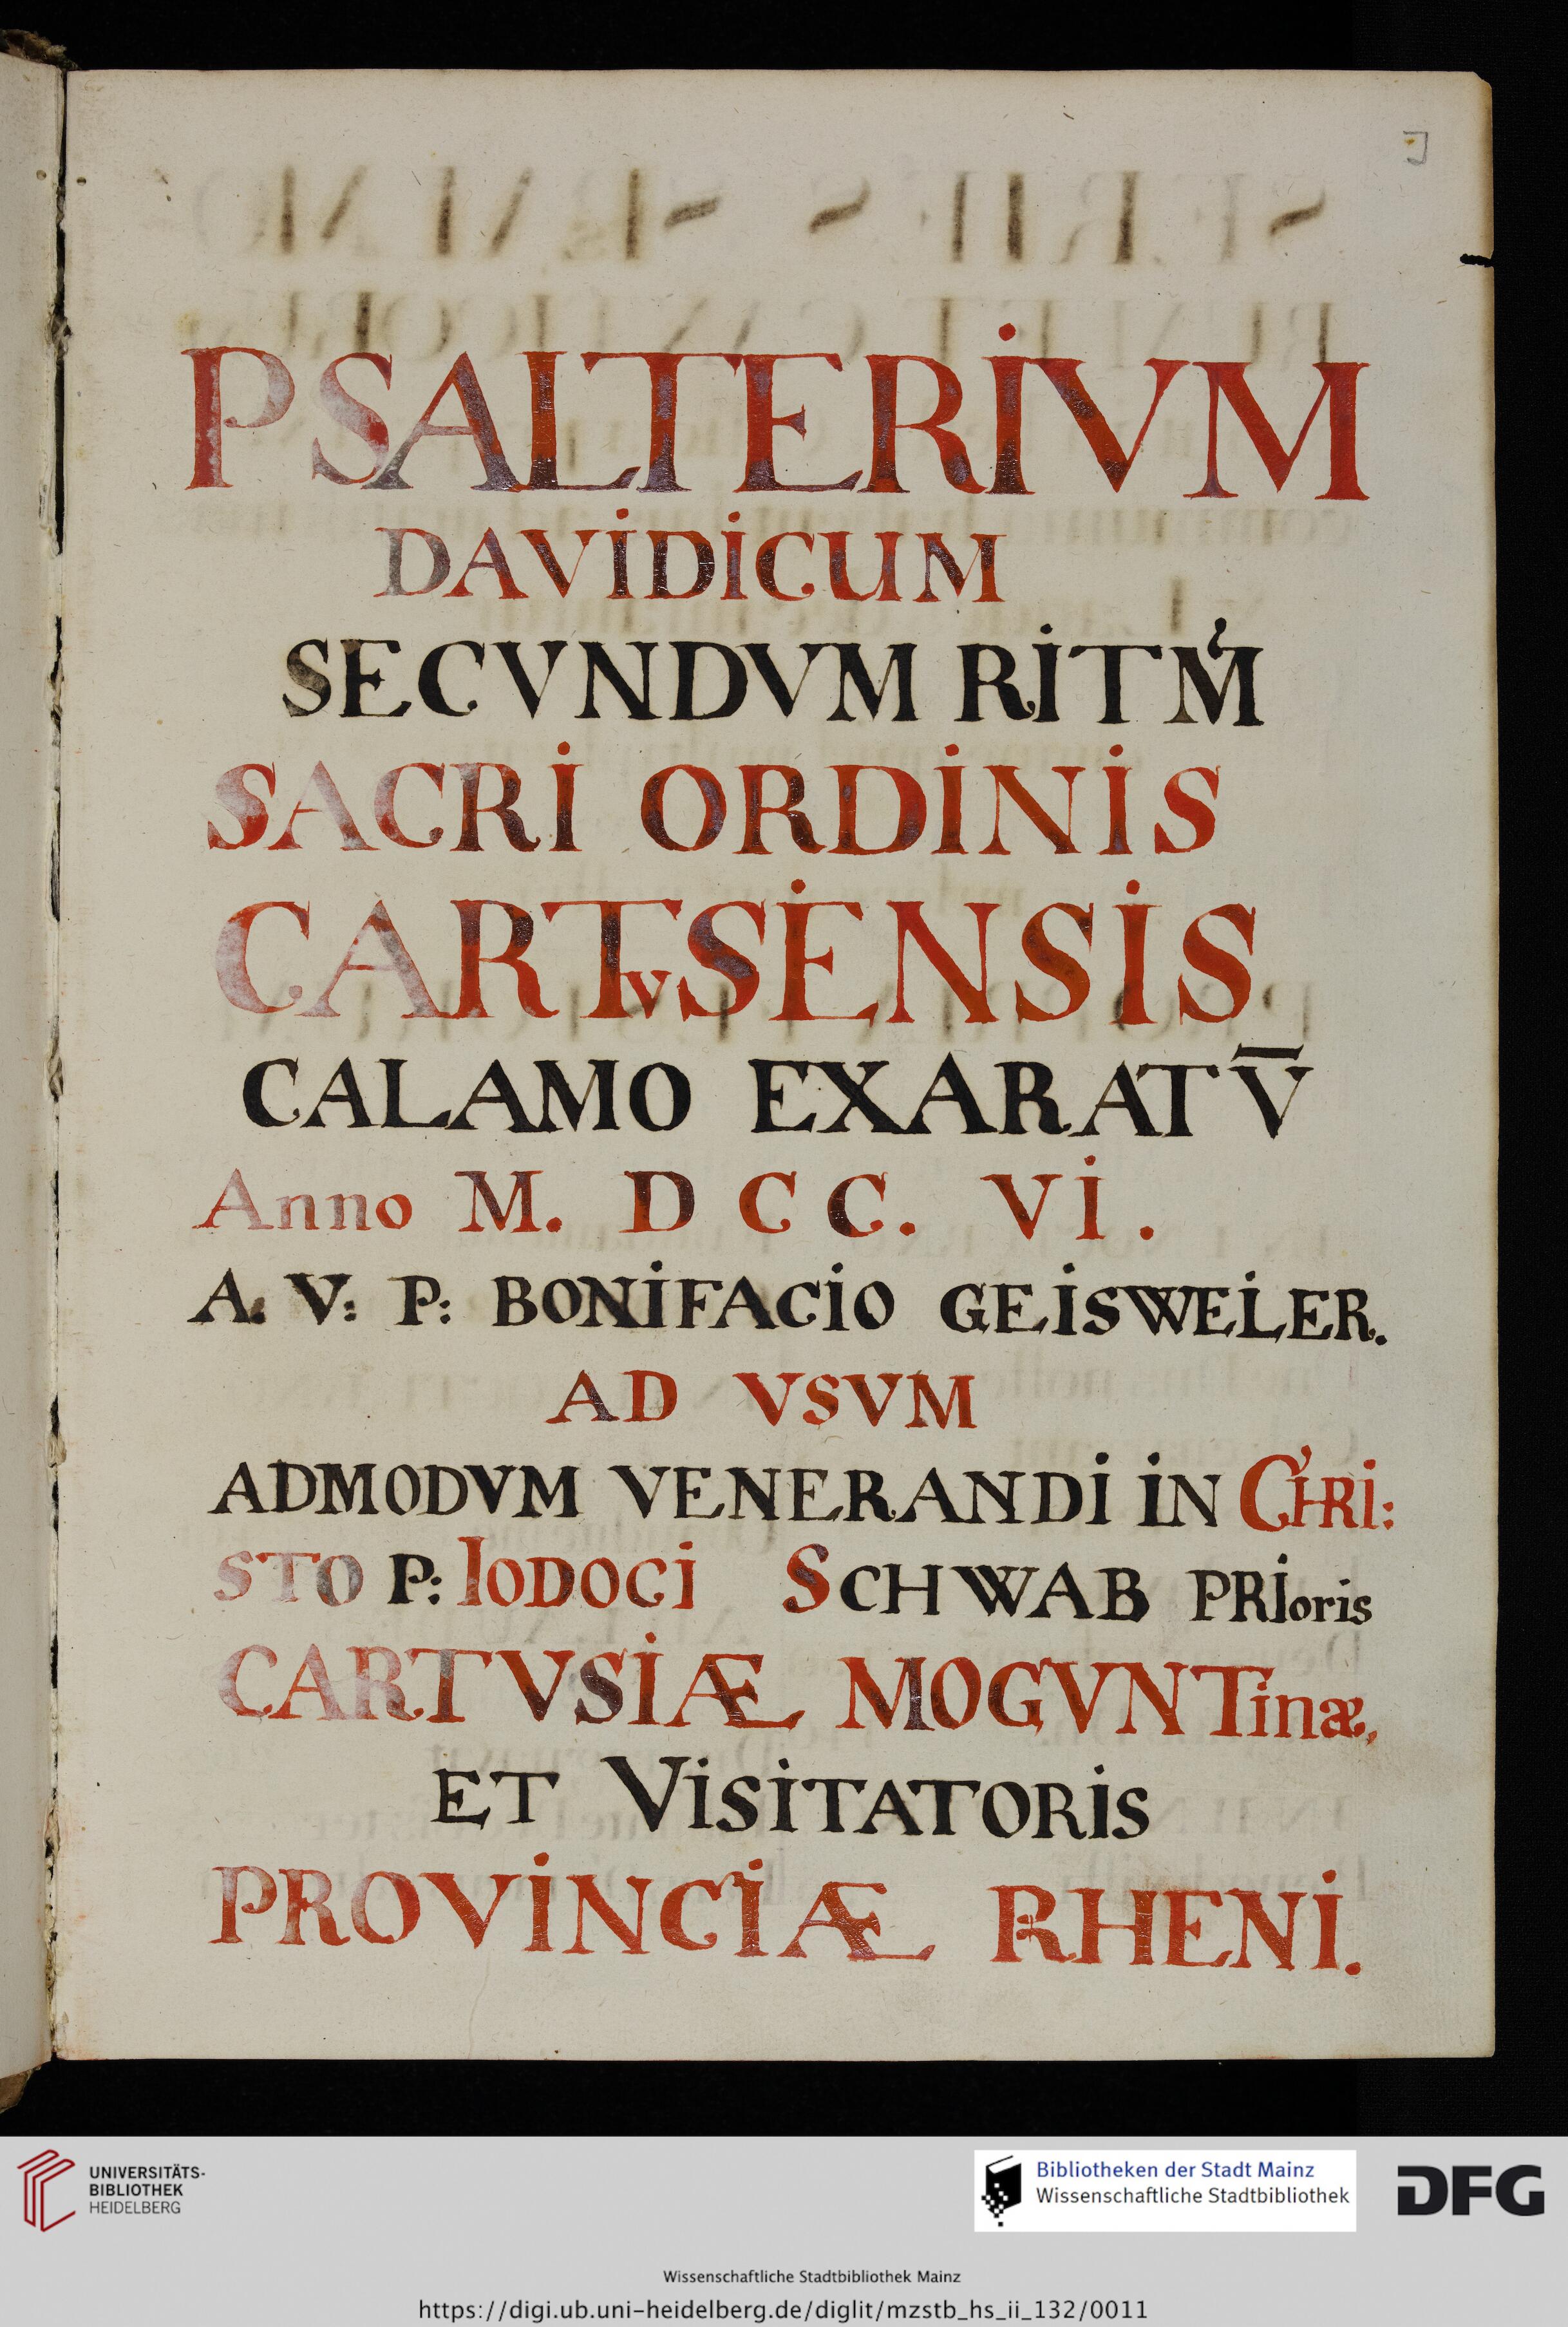 PSALTERIVM
DAVIDICUM
SECVNDVM RITM̓
SACRI ORDINIS
CARTvSIENSIS
CALAMO EXARATV̄
Anno M. D C C. VI.
A. V: P: BONIFACIO GEISWEILER.
AD VSVM
ADMODVM VENERANDI IN CHRI:
STO P: IODOCI SCHWAB PRIoris
CARTVSIÆ MOGVNTinæ,
ET VISITATORIS
PROVINCIÆ RHENI.
UNIVERSITÄTS-
BIBLIOTHEK
HEIDELBERG
Bibliotheken der Stadt Mainz
Wissenschaftliche Stadtbibliothek
DFG
Wissenschaftliche Stadtbibliothek Mainz
https://digi.ub.uni-heidelberg.de/diglit/mzstb_hs_ii_132/0011